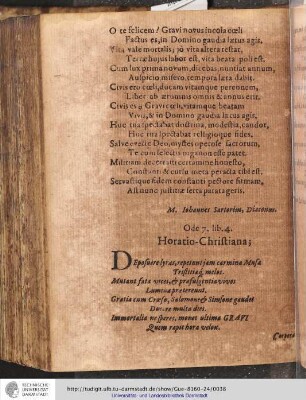 O te felicem! Gravi novus incola cœli
Factus es, in Domino gaudia lætus agis,
Vita vale mortalis; jó vita altera restat,
Terra hujus labor est, vita beata poli est.
Cum lux prima novum, dicebas, nuntiat annum,
Auspicio misero, tempora læta dabit.
Civis ero cœli, ducam vitamque perennem,
Liber ab ærumnis omnis & omnis erit.
Civis es ô Gravi cœli, vitamque beatam
Vivis, & in Domino gaudia lætus agis,
Huc tua spectabat doctrina, modestia, candor,
Huc tua spectabat religioque fides.
Salve evecte Deo, mystes operose sacrorum,
Te cum selectis non est pater.
Militiam decertasti certamine honesto,
Constanti & cursu meta peracta tibi est.
Servastique fidem constanti pectore firmam,
At nunc justitiæ serta parata geris.
M. Iohannes Sartorius, Diaconus.
Ode 7. lib. 4.
Horatio-Christiana;
DEposuere lyras, repetunt jam carmina Musæ
Tristitiaq; melos.
Mutant fata vices, & præfulgentia vivos
Lumina prætereunt.
Gratia cum Crœso, Salomone & Simsone gaudet
Ducere multa dies.
Immortalia ne speres, monet ultima GRAVI
Quem rapit hora volon.
Corpora
TECHNISCHE
UNIVERSITÄT
DARMSTADT
http://tudigit.ulb.tu-darmstadt.de/show/Gue-8360-24/0038
Universitäts- und Landesbibliothek Darmstadt